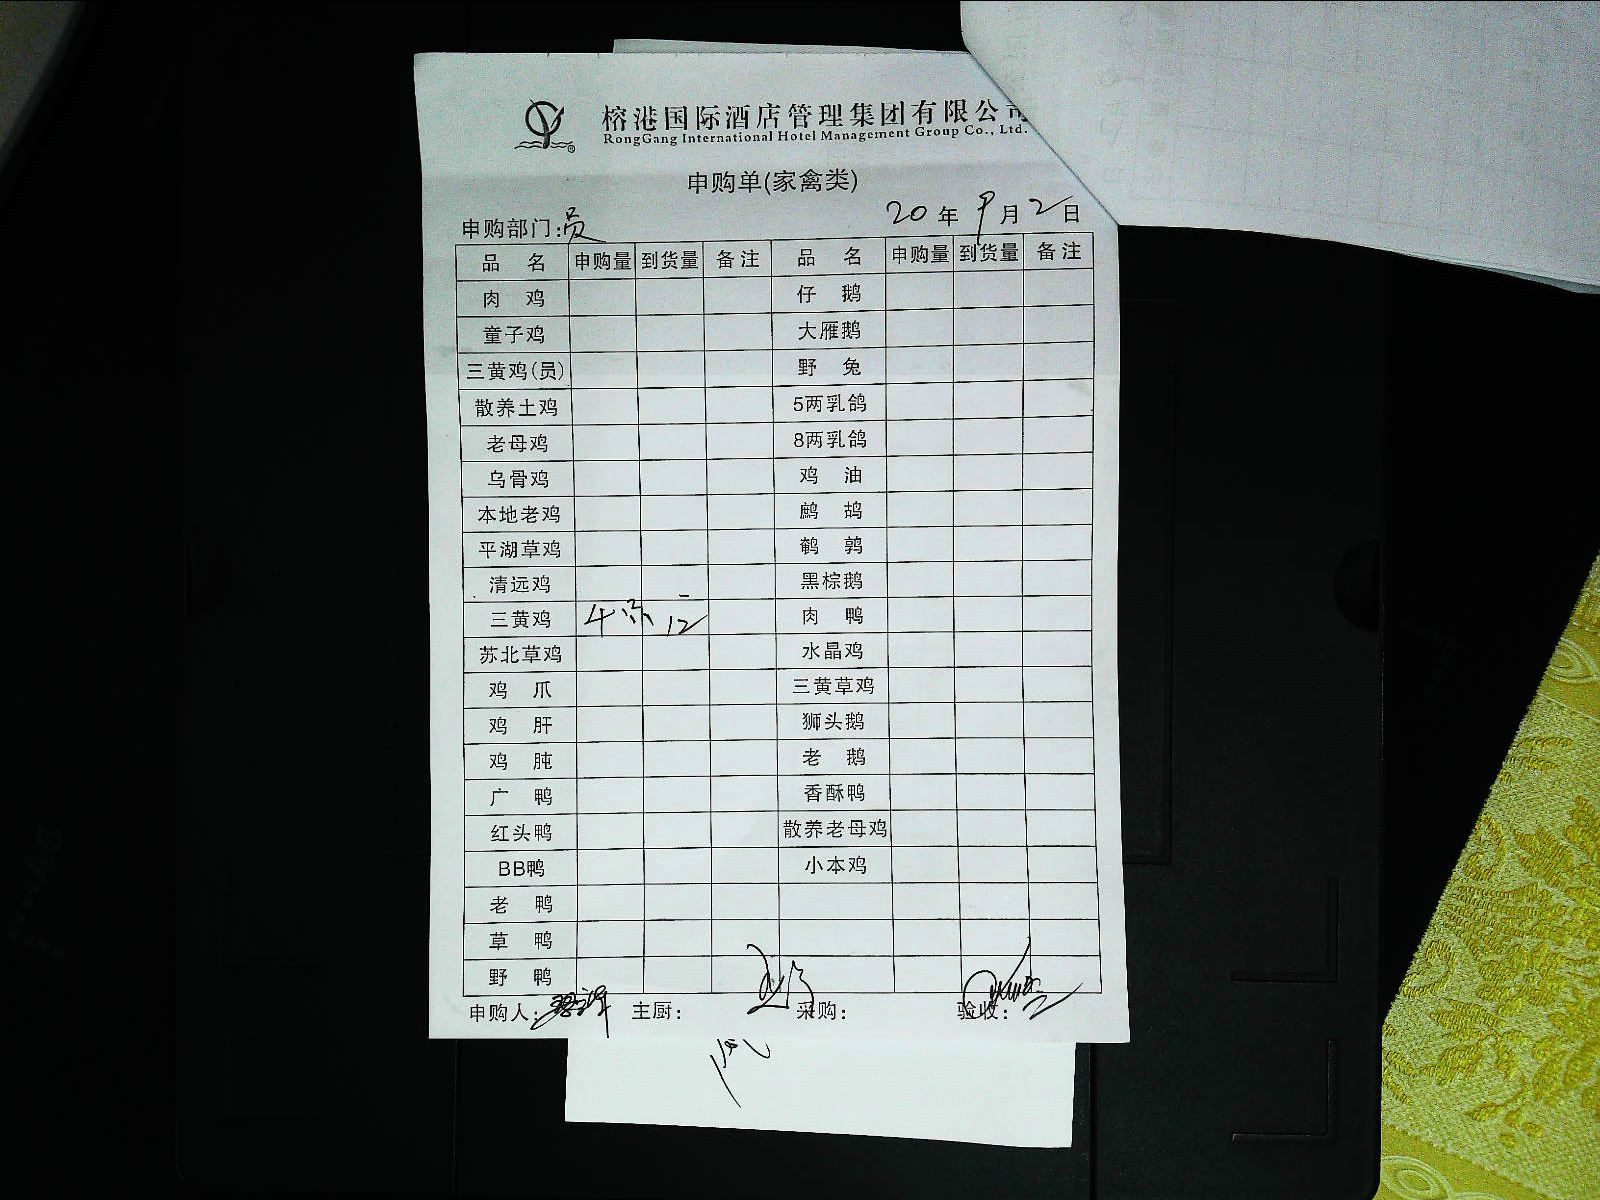 榕港国际酒店管理集团有限公司
RongGang International Hotel Management Group Co., Ltd.
申购单(家禽类)
申购部门:员 20 年 9 月 2 日
品 名 申购量 到货量 备注 品 名 申购量 到货量 备注
肉 鸡 仔 鹅
童子鸡 大雁鹅
三黄鸡(员) 野 兔
散养土鸡 5两乳鸽
老母鸡 8两乳鸽
乌骨鸡 鸡 油
本地老鸡 鹧 鸪
平湖草鸡 鹌 鹑
清远鸡 黑棕鹅
三黄鸡 4 肉 鸭
苏北草鸡 水晶鸡
鸡 爪 三黄草鸡
鸡 肝 狮头鹅
鸡 肫 老 鹅
广 鸭 香酥鸭
红头鸭 散养老母鸡
BB鸭 小本鸡
老 鸭
草 鸭
野 鸭
申购人: 主厨: 采购: 验收: